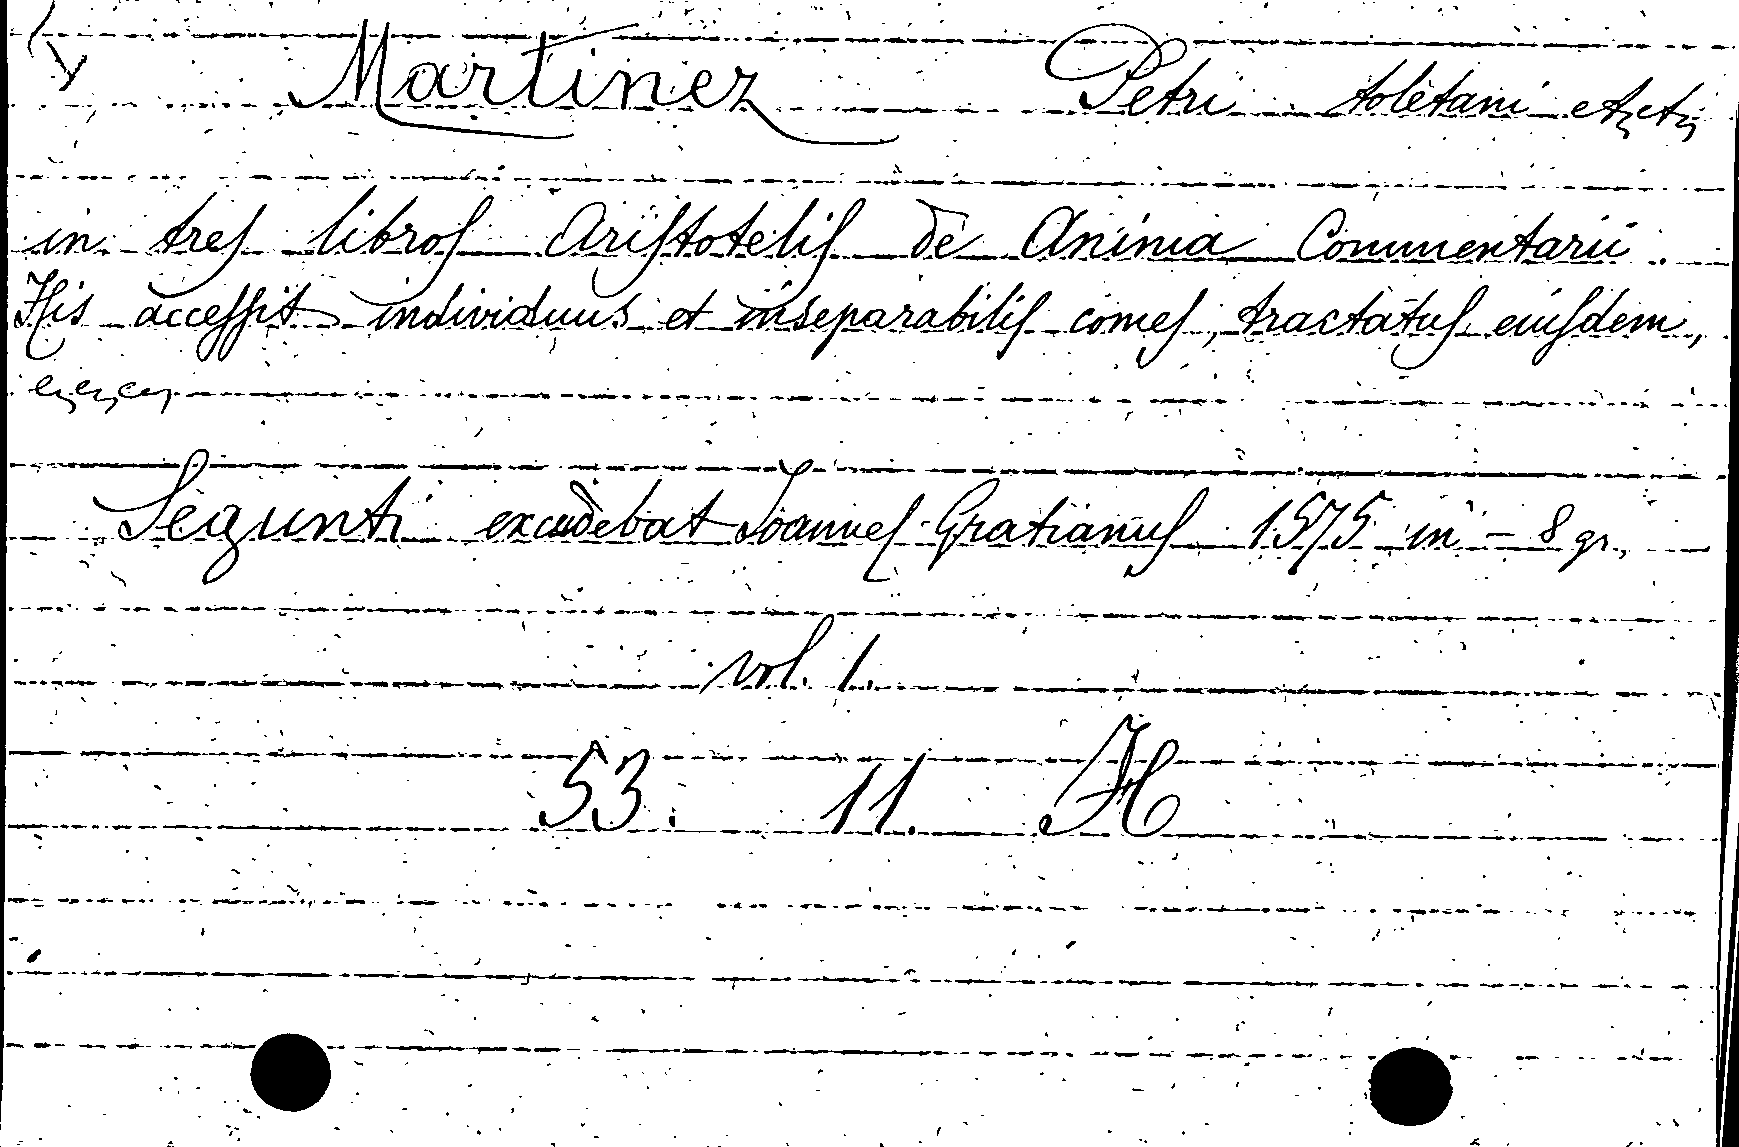 Martinez Petri toletani etc, etc,
in tres libros Aristotelis de Anima Commentarii.
His accessit individuus et inseparabilis comes, tractatus eiusdem,
Segunti excudebat Joannes Gratianus 1575 in - 8 gr.
vol. 1.
53. 11. H